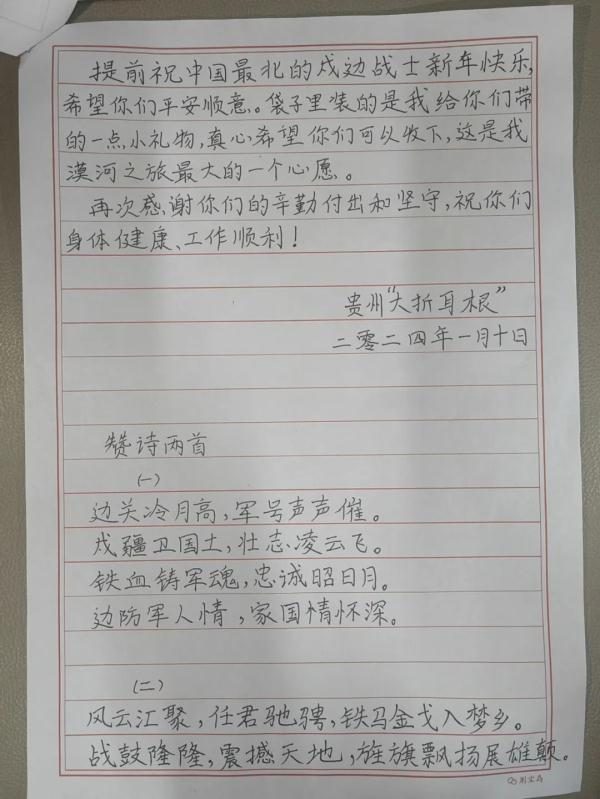 提前祝中国最北的戍边战士新年快乐,
希望你们平安顺意。袋子里装的是我给你们带
的一点小礼物,真心希望你们可以收下,这是我
漠河之旅最大的一个心愿。
再次感谢你们的辛勤付出和坚守,祝你们
身体健康、工作顺利!
贵州“大折耳根”
二零二四年一月十日
赞诗两首
(一)
边关冷月高,军号声声催。
戍疆卫国土,壮志凌云飞。
铁血铸军魂,忠诚昭日月。
边防军人情,家国情怀深。
(二)
风云汇聚,任君驰骋,铁马金戈入梦乡。
战鼓隆隆,震撼天地,旌旗飘扬展雄巅。